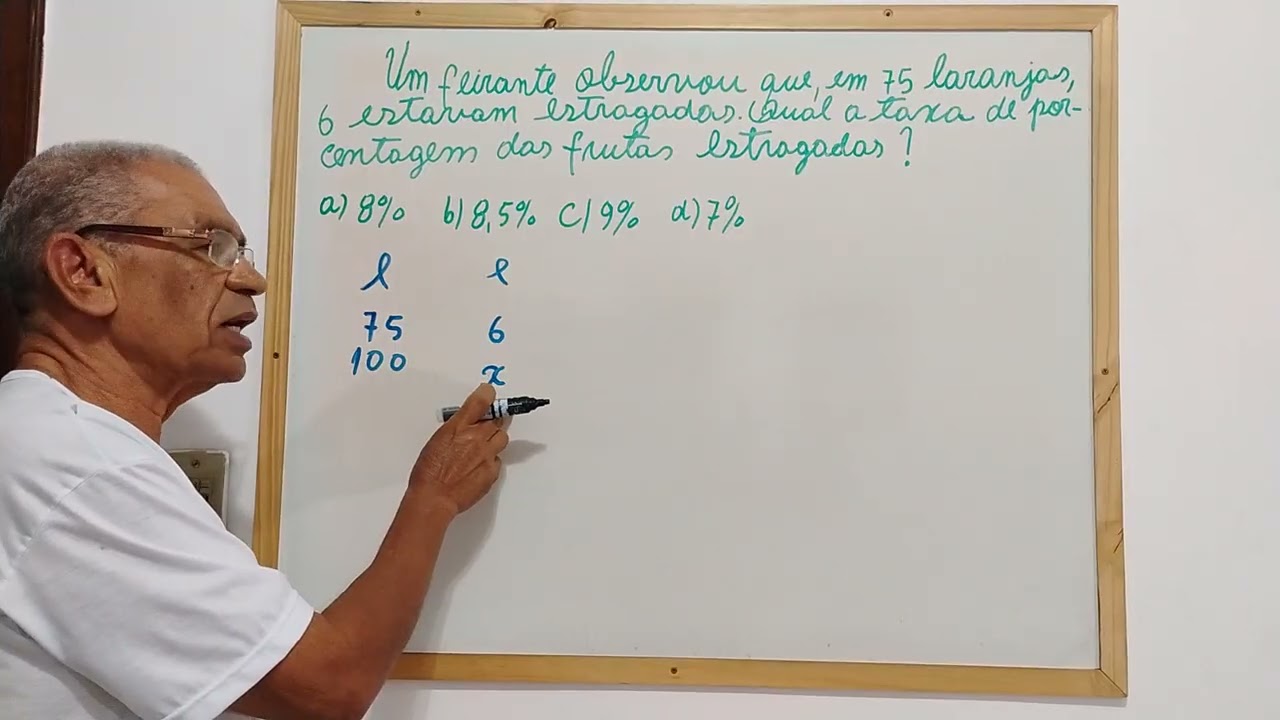 Um feirante observou que, em 75 laranjas,
6 estavam estragadas. Qual a taxa de por-
centagem das frutas estragadas?
a) 8% b) 8,5% c) 9% d) 7%
l e
75 6
100 x